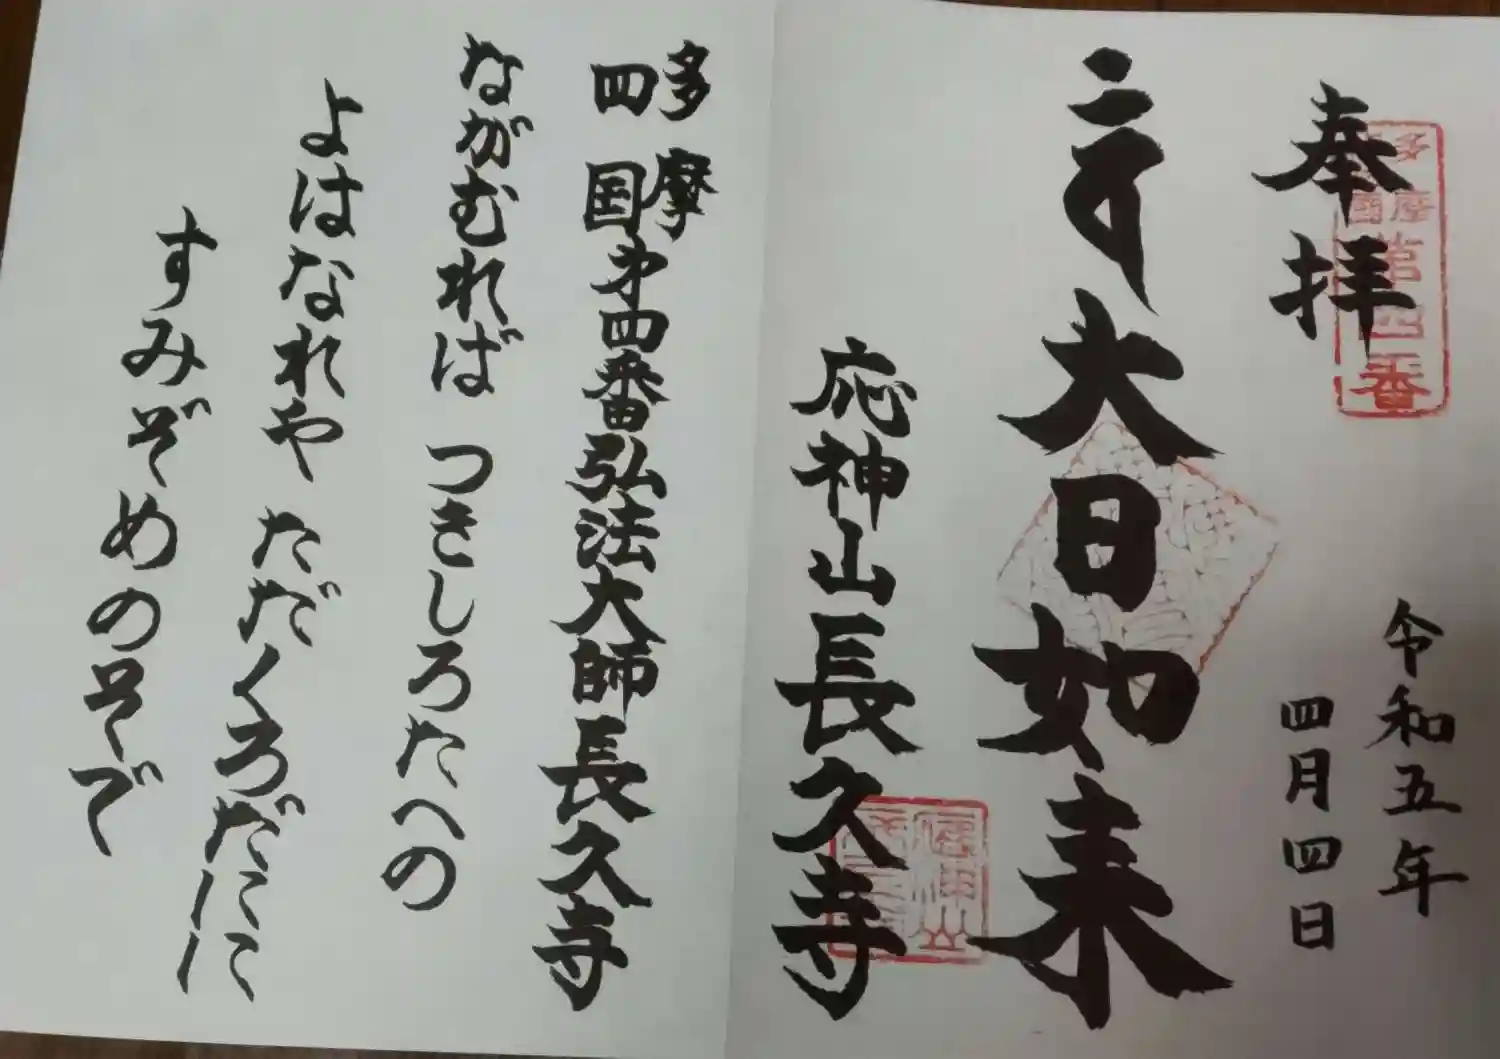 奉拝
多摩
四国
第四番
令和五年
四月四日
大日如来
応神山長久寺
多摩
四国第四番弘法大師長久寺
ながむれば つきしろたへの
よはなれや ただくろだにに
すみぞめのそで